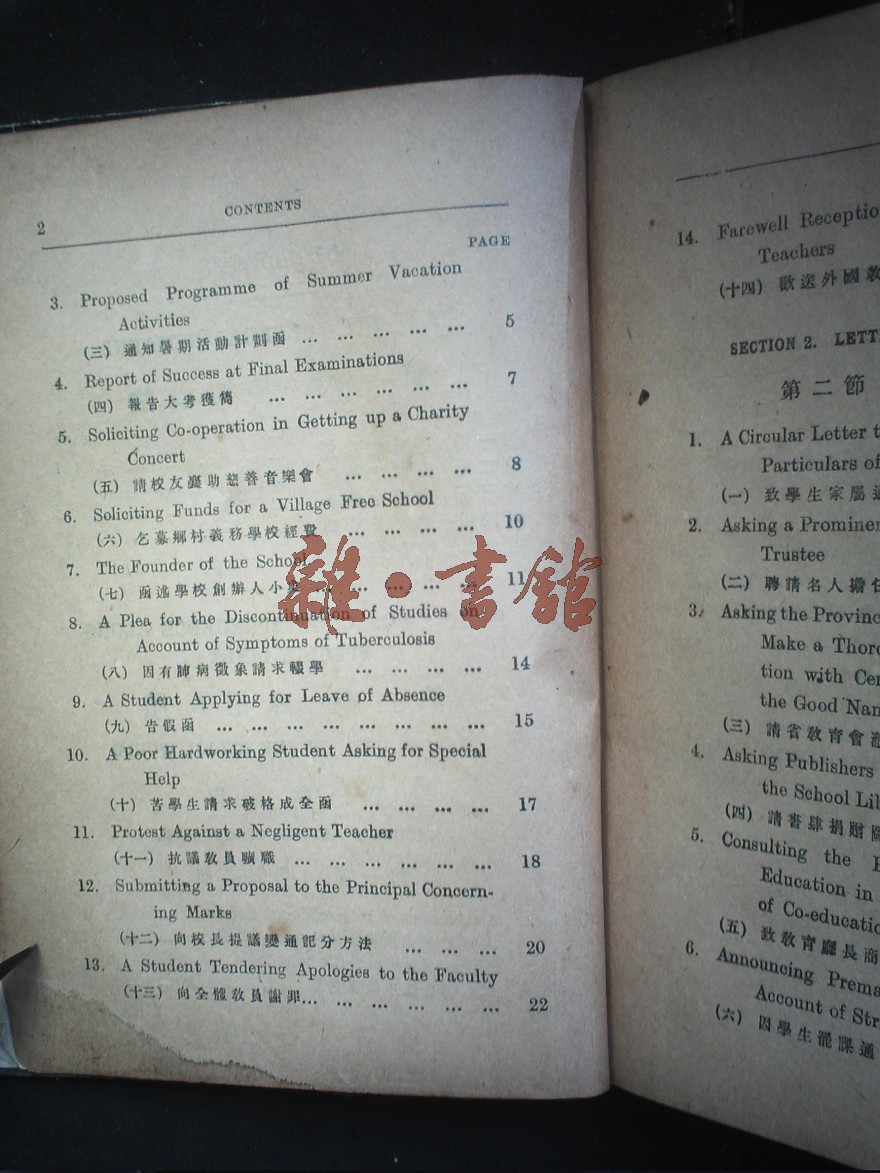 2
CONTENTS
PAGE
3. Proposed Programme of Summer Vacation
Activities
(三) 通知暑期活動計劃函 ... ... ... ... ... 5
4. Report of Success at Final Examinations
(四) 報告大考獲雋 ... ... ... ... ... ... 7
5. Soliciting Co-operation in Getting up a Charity
Concert
(五) 請校友襄助慈善音樂會 ... ... ... ... 8
6. Soliciting Funds for a Village Free School
(六) 乞募鄉村義務學校經費 ... ... ... ... 10
7. The Founder of the School
(七) 函述學校創辦人小史 ... ... ... ... ... 11
8. A Plea for the Discontinuation of Studies on
Account of Symptoms of Tuberculosis
(八) 因有肺病徵象請求輟學 ... ... ... ... 14
9. A Student Applying for Leave of Absence
(九) 告假函 ... ... ... ... ... ... ... ... 15
10. A Poor Hardworking Student Asking for Special
Help
(十) 苦學生請求破格成全函 ... ... ... ... 17
11. Protest Against a Negligent Teacher
(十一) 抗議敎員曠職 ... ... ... ... ... ... 18
12. Submitting a Proposal to the Principal Concern-
ing Marks
(十二) 向校長提議變通記分方法 ... ... ... 20
13. A Student Tendering Apologies to the Faculty
(十三) 向全體敎員謝罪... ... ... ... ... ... 22
雜·書館
14. Farewell Receptio
Teachers
(十四) 歡送外國敎
SECTION 2. LETT
第二節
1. A Circular Letter t
Particulars of
(一) 致學生家屬通
2. Asking a Prominen
Trustee
(二) 聘請名人擔任
3. Asking the Provinc
Make a Thoro
tion with Cer
the Good Nam
(三) 請省敎育會
4. Asking Publishers
the School Lib
(四) 請書肆捐贈
5. Consulting the
Education in
of Co-educatio
(五) 致敎育廳長商
6. Announcing Prema
Account of Str
(六) 因學生罷課通